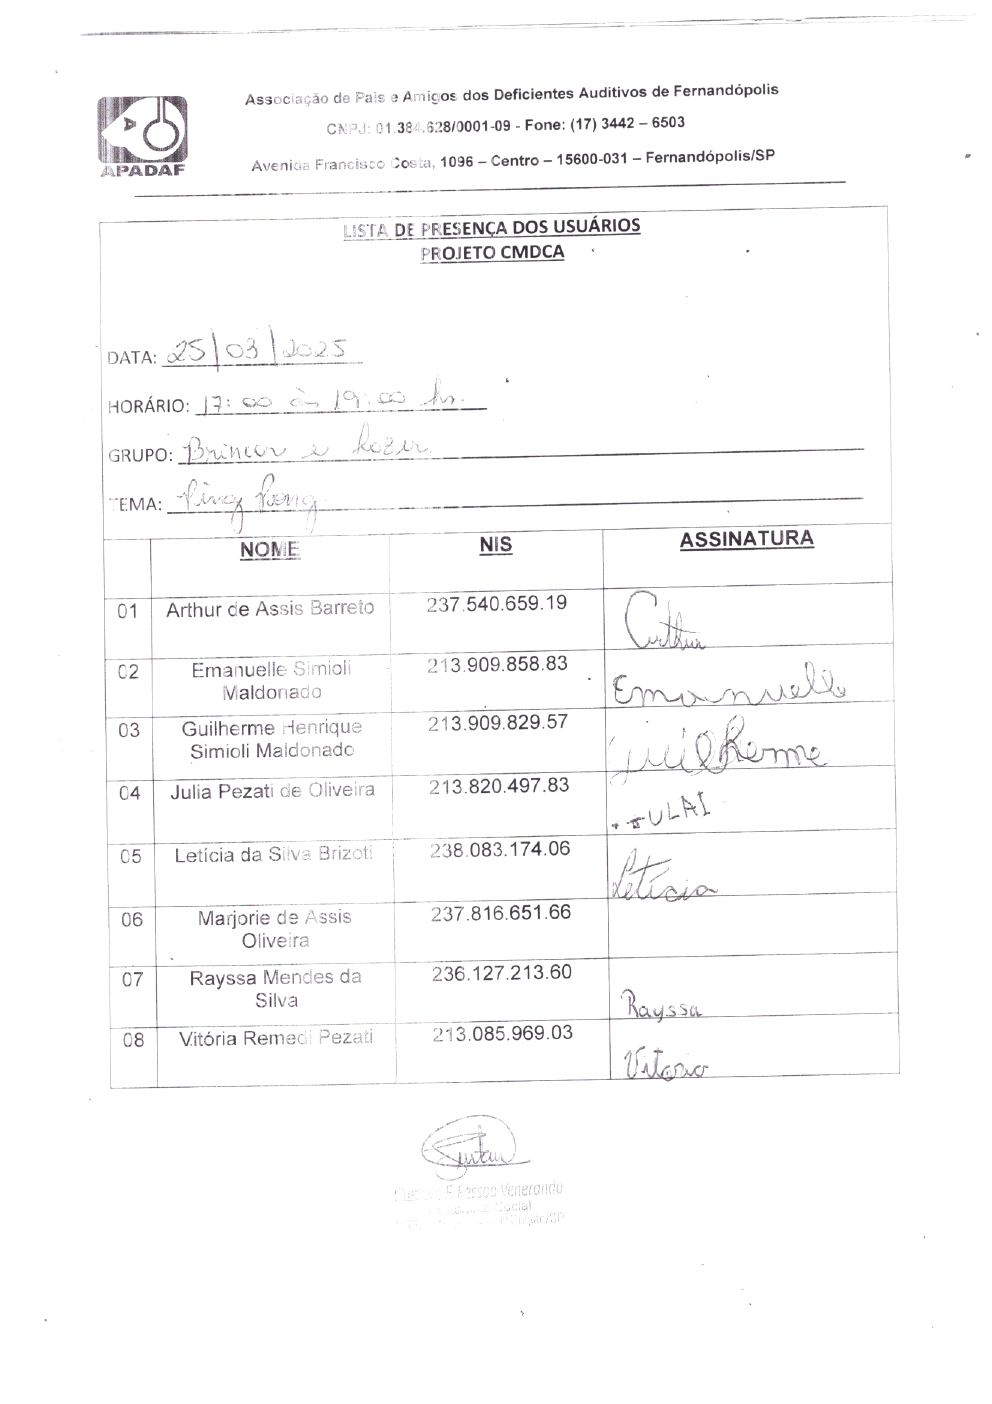 Associação de Pais e Amigos dos Deficientes Auditivos de Fernandópolis
CNPJ: 01.384.628/0001-09 - Fone: (17) 3442 – 6503
Avenida Francisco Costa, 1096 – Centro – 15600-031 – Fernandópolis/SP
APADAF
LISTA DE PRESENÇA DOS USUÁRIOS
PROJETO CMDCA
DATA: 25/03/2025
HORÁRIO: 17:00 às 19:00 hs.
GRUPO: Brincar e Lazer
TEMA: Ping Pong
NOME NIS ASSINATURA
01 Arthur de Assis Barreto 237.540.659.19 Arthur
02 Emanuelle Simioli Maldonado 213.909.858.83 Emanuelle
03 Guilherme Henrique Simioli Maldonado 213.909.829.57 Guilherme
04 Julia Pezati de Oliveira 213.820.497.83
05 Letícia da Silva Brizoti 238.083.174.06 Letícia
06 Marjorie de Assis Oliveira 237.816.651.66
07 Rayssa Mendes da Silva 236.127.213.60 Rayssa
08 Vitória Remedi Pezati 213.085.969.03 Vitoria
Venerando
Social